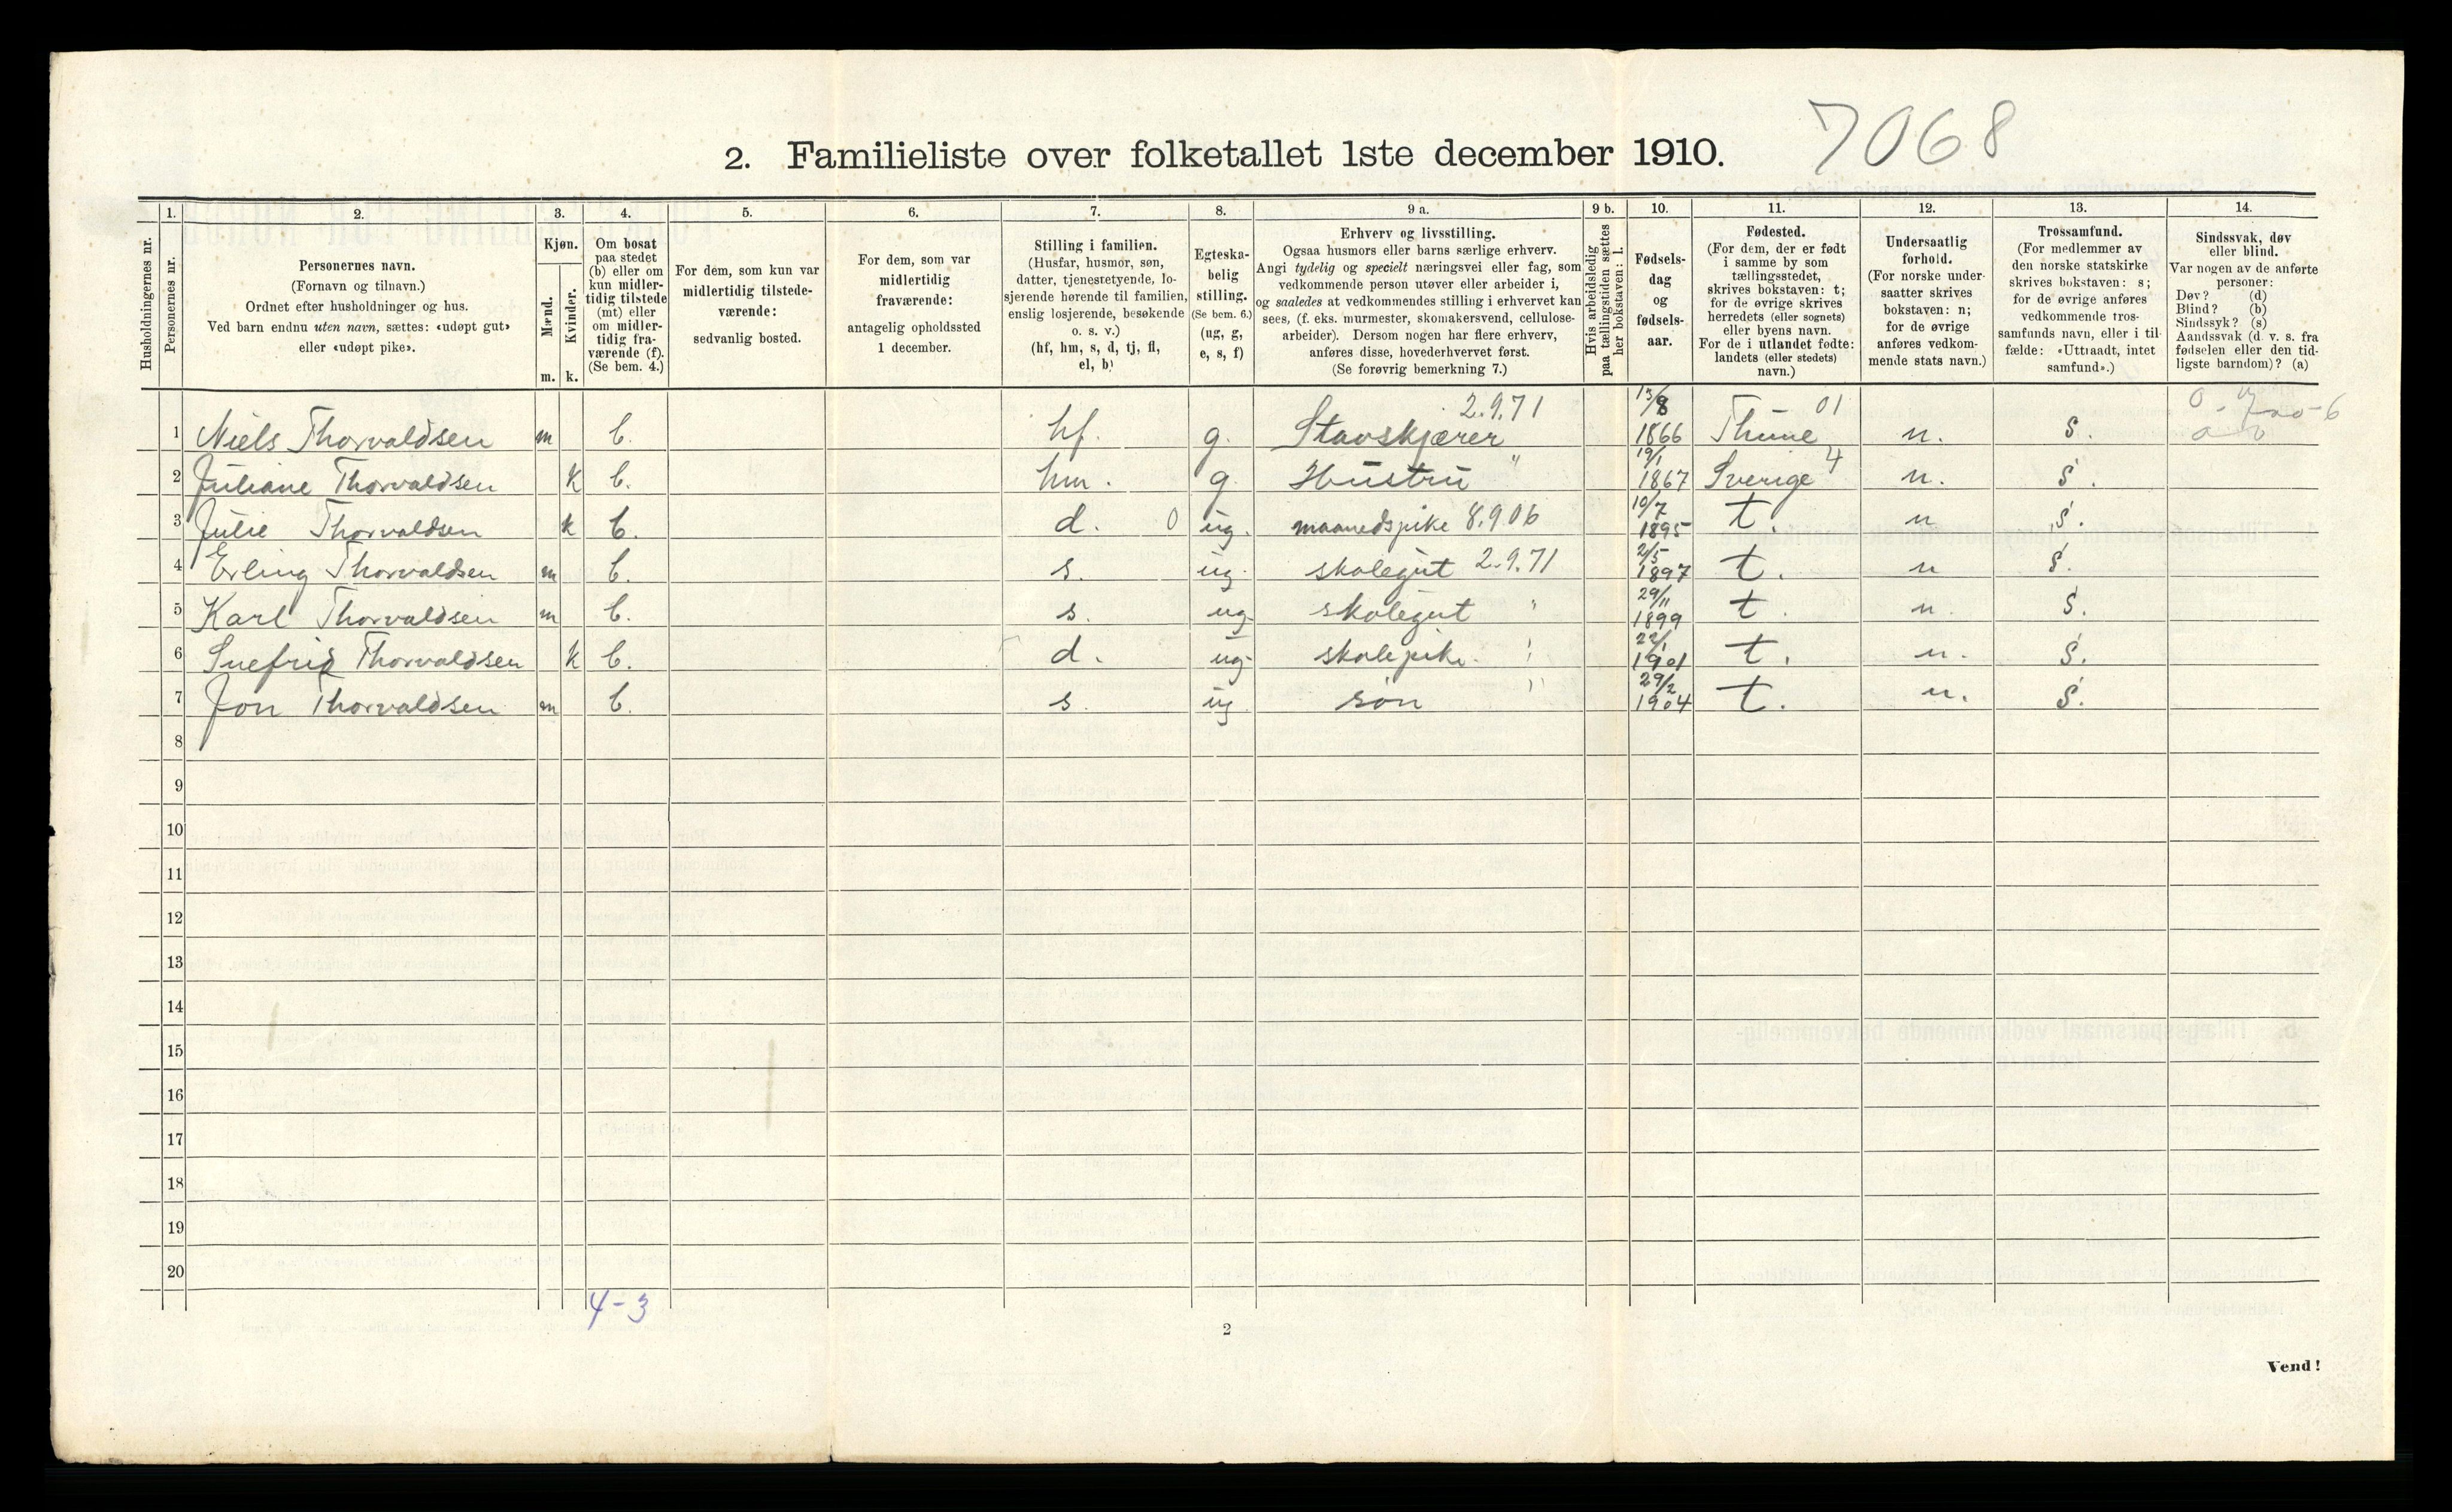 7068
2. Familieliste over folketallet 1ste december 1910.
Husholdningernes nr.
1.
Personernes nr.
2.
Personernes navn.
(Fornavn og tilnavn.)
Ordnet efter husholdninger og hus.
Ved barn endnu uten navn, sættes: «udøpt gut»
eller «udøpt pike».
3.
Kjøn.
Mænd.
Kvinder.
m. k.
4.
Om bosat
paa stedet
(b) eller om
kun midler-
tidig tilstede
(mt) eller
om midler-
tidig fra-
værende (f).
(Se bem. 4.)
5.
For dem, som kun var
midlertidig tilstede-
værende:
sedvanlig bosted.
6.
For dem, som var
midlertidig
fraværende:
antagelig opholdssted
1 december.
7.
Stilling i familien.
(Husfar, husmor, søn,
datter, tjenestetyende, lo-
sjerende hørende til familien,
enslig losjerende, besøkende
o. s. v.)
(hf, hm, s, d, tj, fl,
el, b)
8.
Egteska-
belig
stilling.
(Se bem. 6.)
(ug, g,
e, s, f)
9 a.
Erhverv og livsstilling.
Ogsaa husmors eller barns særlige erhverv.
Angi tydelig og specielt næringsvei eller fag, som
vedkommende person utøver eller arbeider i,
og saaledes at vedkommendes stilling i erhvervet kan
sees, (f. eks. murmester, skomakersvend, cellulose-
arbeider). Dersom nogen har flere erhverv,
anføres disse, hovederhvervet først.
(Se forøvrig bemerkning 7.)
9 b.
Hvis arbeidsledig
paa tællingstiden sættes
her bokstaven: l.
10.
Fødsels-
dag
og
fødsels-
aar.
11.
Fødested.
(For dem, der er født
i samme by som
tællingsstedet,
skrives bokstaven: t;
for de øvrige skrives
herredets (eller sognets)
eller byens navn.
For de i utlandet fødte:
landets (eller stedets)
navn.)
12.
Undersaatlig
forhold.
(For norske under-
saatter skrives
bokstaven: n;
for de øvrige
anføres vedkom-
mende stats navn.)
13.
Trossamfund.
(For medlemmer av
den norske statskirke
skrives bokstaven: s;
for de øvrige anføres
vedkommende tros-
samfunds navn, eller i til-
fælde: «Uttraadt, intet
samfund».)
14.
Sindssvak, døv
eller blind.
Var nogen av de anførte
personer:
Døv? (d)
Blind? (b)
Sindssyk? (s)
Aandssvak (d. v. s. fra
fødselen eller den tid-
ligste barndom)? (a)
1 Niels Thorvaldsen m b. hf. g. Stavskjærer 2.9.71 13/8 1866 Thune 01 n. s.
2 Juliane Thorvaldsen k b. hm. g. Hustru " 19/1 1867 Sverige 4 n. s.
3 Julie Thorvaldsen k b. d. 0 ug. maanedspike 8.9.06 10/7 1895 t. n s.
4 Erling Thorvaldsen m b. s. ug. skolegut 2.9.71 2/5 1897 t. n s.
5 Karl Thorvaldsen m b. s. ug. skolegut " 29/11 1899 t. n. s.
6 Snefrid Thorvaldsen k b. d. ug. skolepike. " 22/1 1901 t. n. s.
7 Jon Thorvaldsen m b. s ug. søn " 29/2 1904 t. n. s.
8
9
10
11
12
13
14
15
16
17
18
19
20
4-3
2
Vend!